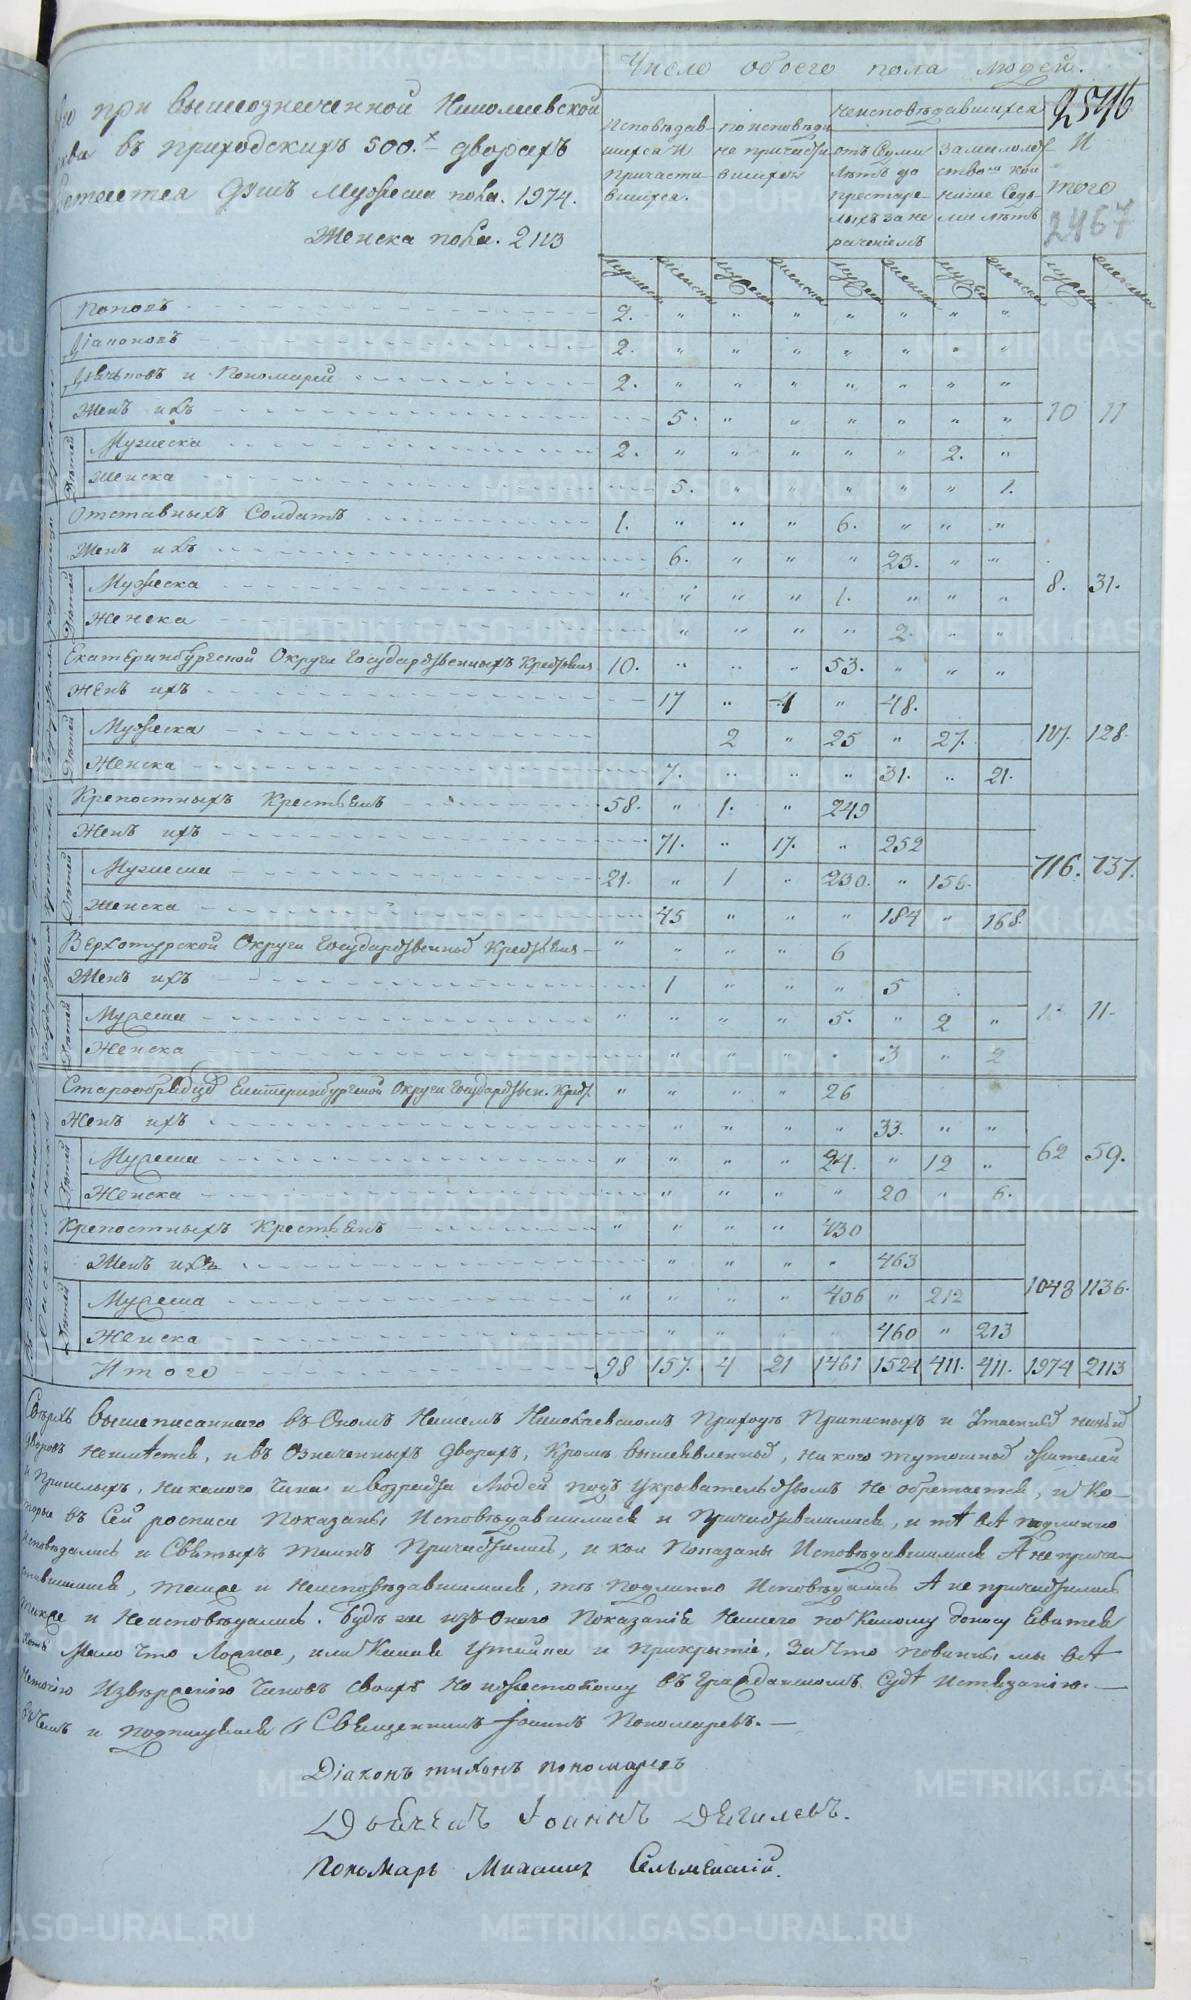 Число обоего пола людей.
2546
при вышеозначенной Николаевской
въ приходскихъ 500.хъ дворахъ
душъ Мужеска пола. 1974.
Женска пола. 2113
Исповѣдав-
шихся и
причасти-
вшихся.
по исповѣди
не причасти
вшихся
неисповѣдавшихся
отъ Семи
лѣтъ до
престаре-
лыхъ за не
раченіемъ
за малолѣт
ствомъ кои
ниже Седь-
ми лѣтъ
И
того
2467
мужеска женска мужеска женска мужеска женска мужеска женска мужеска женска
Поповъ 2. " " " " " " "
Діаконовъ 2. " " " " " " "
Дьячковъ и Пономарей 2. " " " " " " "
Женъ ихъ 5. " " " " " " 10 11
Дѣтей
Мужеска 2. " " " " " 2. "
Женска 5. " " " " " 1.
Отставныхъ Солдатъ 1. " " " 6. " " "
Женъ ихъ 6. " " " 23. " "
Дѣтей
Мужеска " " " " 1. " " " 8. 31.
Женска " " " " 2. " "
Екатеринбургской Округи Государственныхъ Крестьянъ 10. " " " 53. " " "
Женъ ихъ 17 " 4 " 48.
Дѣтей
Мужеска 2 " 25 " 27. 117. 128.
Женска 7. " " " 31. " 21.
Крепостныхъ Крестьянъ 58. " 1. " 249
Женъ ихъ 71. " 17. " 252
Дѣтей
Мужеска 21. " 1 " 230. " 156. 716. 737.
Женска 45 " " " 184 " 168.
Верхотурской Округи Государственных Крестьянъ " " " " 6
Женъ ихъ 1 " " " 5
Дѣтей
Мужеска " " " " 5. " 2 " 11.
Женска " " " " 3 " 2
Старообрядцовъ Екатеринбургской Округи Государствен. Крест. " " " " 26
Женъ ихъ " " " " 33. " "
Дѣтей
Мужеска " " " " 24. " 12 " 62 59.
Женска " " " " 20 " 6.
Крепостныхъ Крестьянъ " " " " 430
Женъ ихъ " " " " 463
Дѣтей
Мужеска " " " " 406 " 212 1048 1136.
Женска " " " " 460 " 213
Итого 98 157. 4 21 1461 1524 411. 411. 1974 2113
Сверхъ вышеписаннаго въ Ономъ Нашемъ Николаевскомъ Приходѣ Приписныхъ и Утаенных никаких
дворовъ неимѣется, и въ Означенныхъ дворахъ, Кромѣ вышеявленных, никого тутошных жителей
и Пришлыхъ, никакого Чина и возраста Людей подъ Укрывательствомъ не обретается, и Ко-
торые въ Сей росписи Показаны Исповѣдавшимися и Причастившимися, и тѣ всѣ подлинно
исповѣдались и Святыхъ Таинъ Причастились, и кои Показаны Исповѣдавшимися А не прича-
стившимися, также и неисповѣдавшимися, тѣ подлинно Исповѣдались А не причастились
также и Неисповѣдались. будѣ же изъ Онаго Показанія Нашего по какому доносу Евится
хотя Мало что Ложное, или Какая утайка и прикрытіе, За Что повинны мы всѣ
неточію Изверженію Чиновъ своихъ Но и жестокому въ Гражданскомъ Судѣ Истязанію.
въ чемъ и подписуемся Священникъ Іоаннъ Пономаревъ.
Діаконъ тихонъ пономаревъ
Дьячекъ Іоаннъ Дягилевъ.
Пономарь Михаилъ